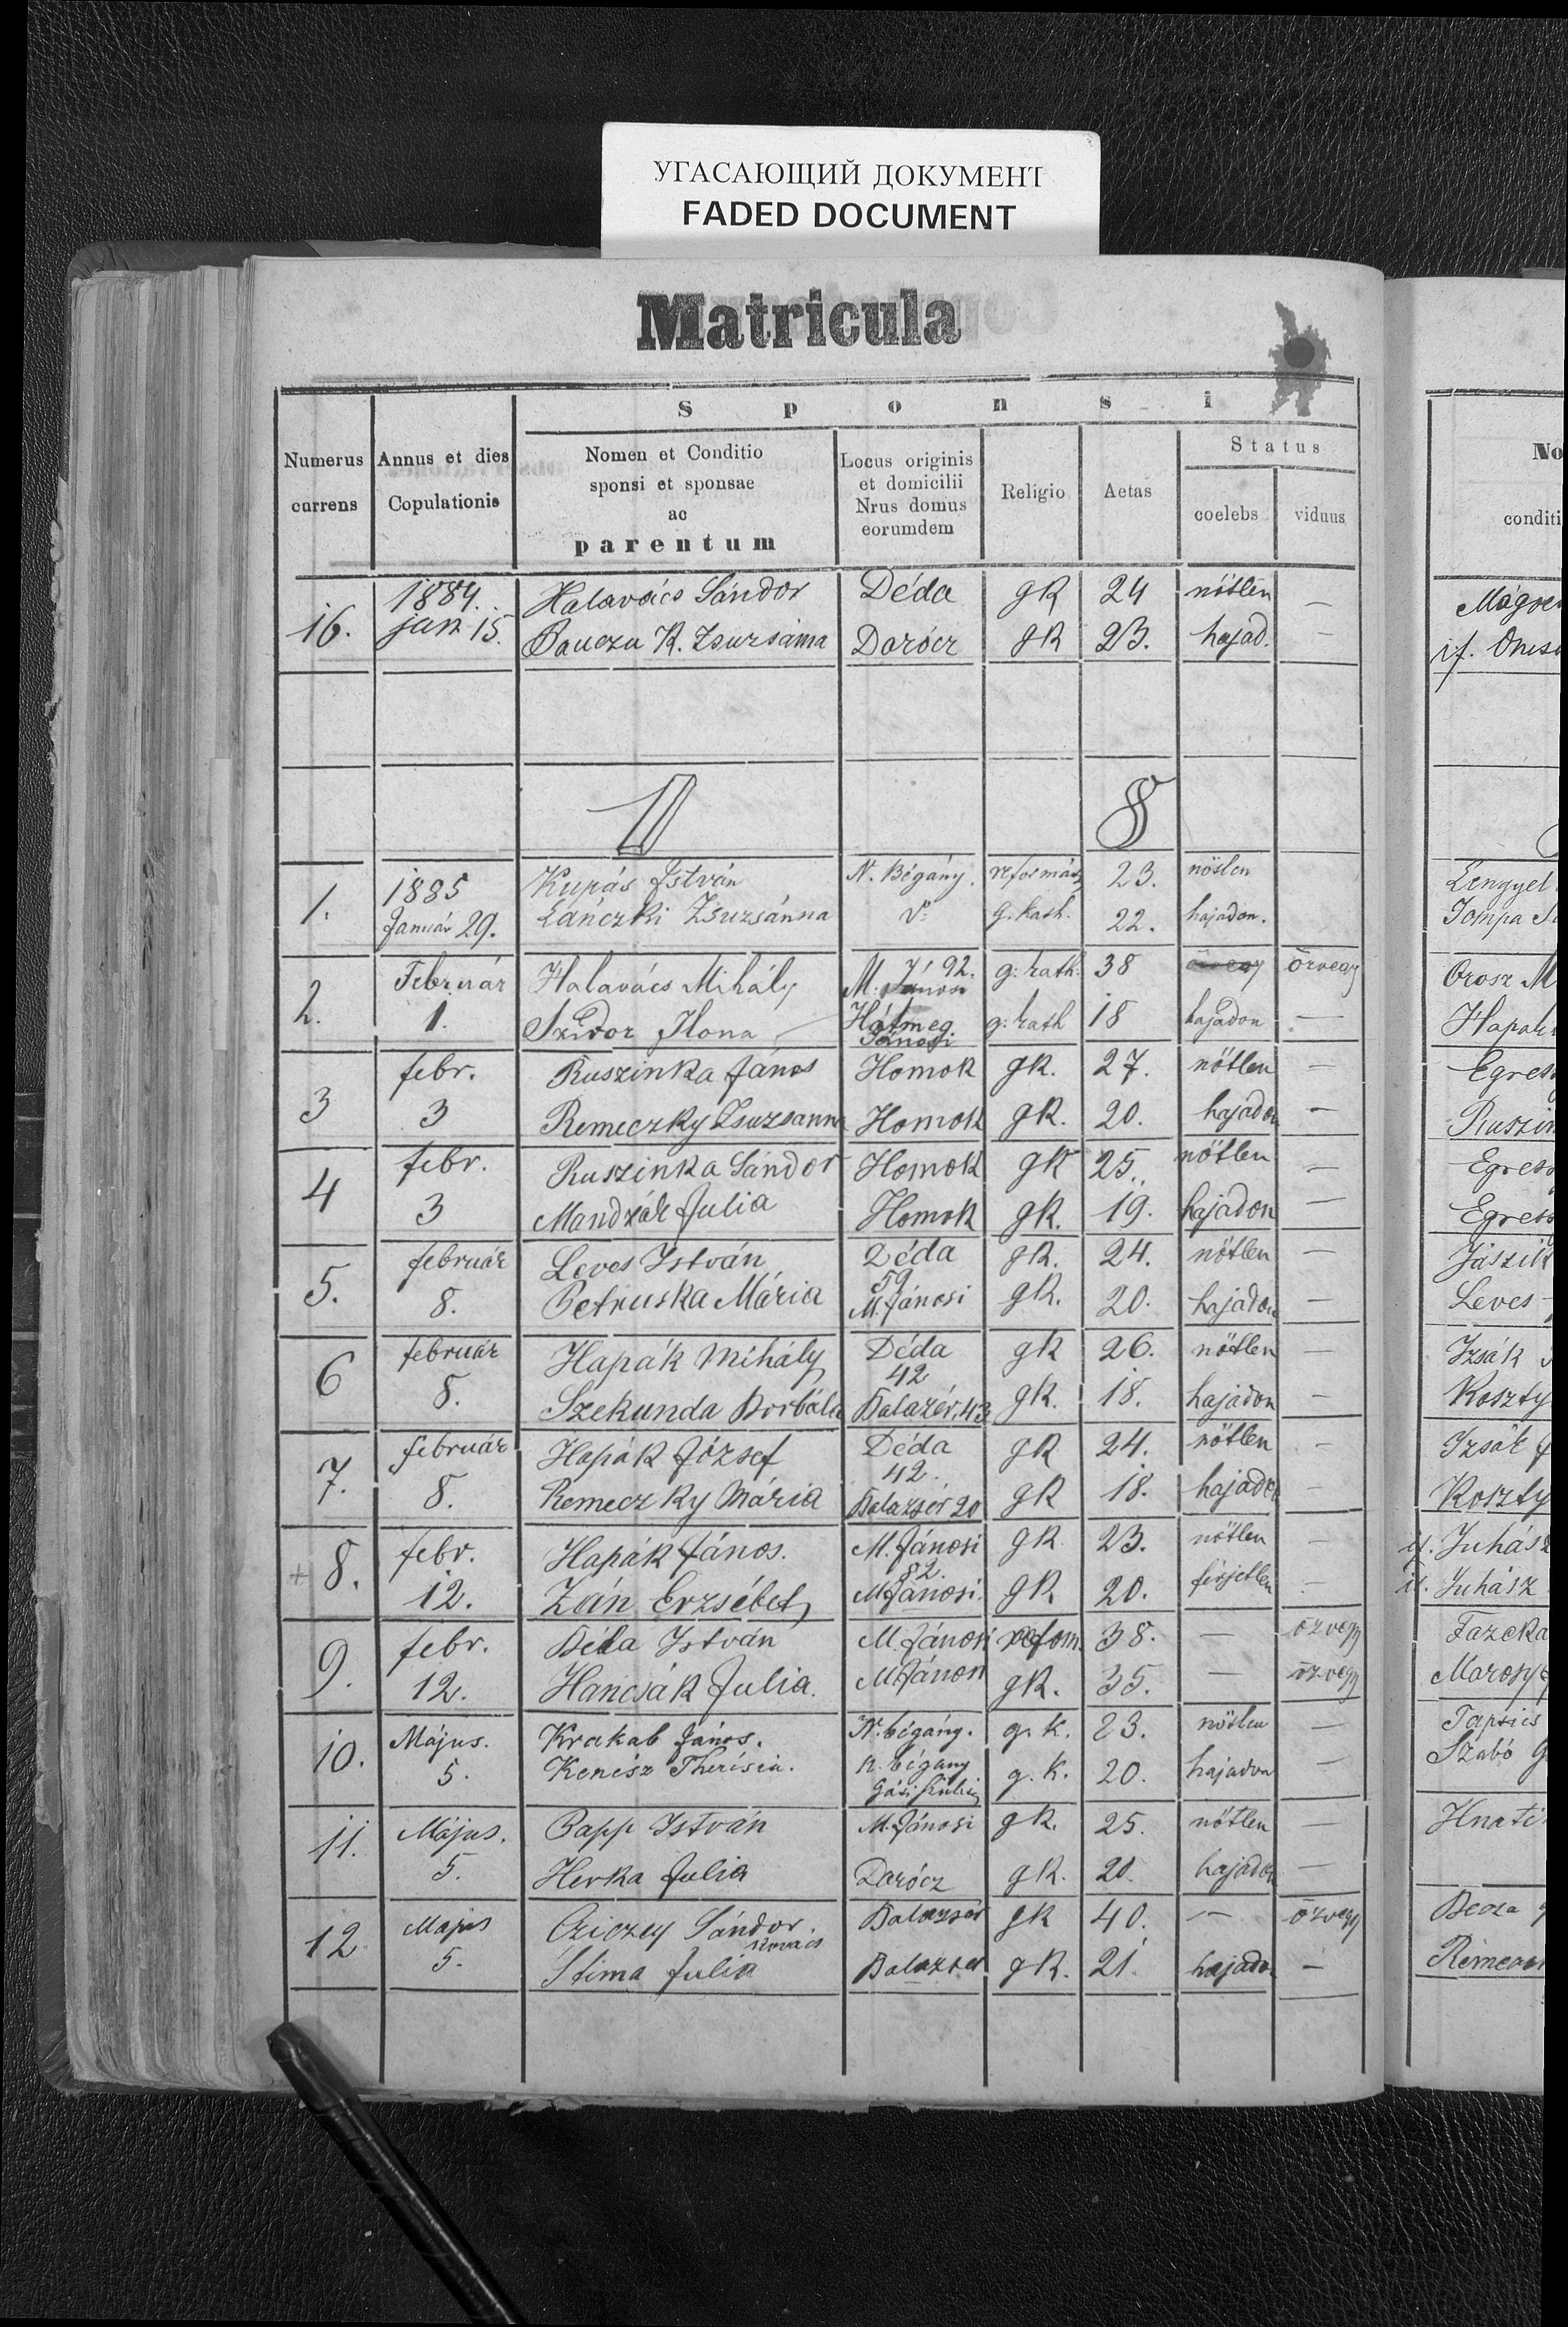 УГАСАЮЩИЙ ДОКУМЕНТ
FADED DOCUMENT
Matricula
Sponsi
Numerus currens
Annus et dies Copulationis
Nomen et Conditio sponsi et sponsae ac parentum
Locus originis et domicilii Nrus domus eorumdem
Religio
Aetas
Status
coelebs
viduus
16. 1884. Halavács Sándor Déda gk 24 nőtlen —
jan 15. K. Zsuzsánna Darócz gk 23. hajad. —
18
1. 1885 Kupás István N. Bégány. 23. nőtlen
Január 29. Lánczki Zsuzsánna g. kath. 22. hajadon.
2. Február Halavács Mihály M. Jánosi 92. g: kath. 38 özvegy
1. Szidor Ilona Hátmeg. Jánosi g: kath 18 hajadon —
3 febr. Ruszinka János Homok gk. 27. nőtlen —
3 Remeczky Zsuzsanna Homok gk. 20. hajadon —
4 febr. Ruszinka Sándor Homok gk 25.. nőtlen —
3 Mandzák Julia Homok gk. 19. hajadon —
5. február Leves István Déda gk. 24. nőtlen —
59
8. Petruska Mária M. Jánosi gk. 20. hajadon —
6 február Hapák Mihály Déda gk 26. nőtlen —
42
8. Szekunda Borbála Balazsér, 43 gk. 18. hajadon —
7. február Hapák József Déda gk 24. nőtlen —
42.
8. Remeczky Mária Balazsér 20 gk 18. hajadon —
+ 8. febr. Hapák János. M. Jánosi gk 23. nőtlen —
82.
12. Zán Erzsébet M. Jánosi. gk 20. férjetlen —
9. febr. Béla István M. Jánosi refom. 38. — özvegy
12. Hancsák Julia. M. Jánosi gk. 35. — özvegy
10. Május. Krakab János. N. bégány. g. k. 23. nőtlen —
5. Kenész Therésia. n. bégány g. k. 20. hajadon —
11. Május. Papp István M. Jánosi gk. 25. nőtlen —
5. Herka Julia Darócz gk. 20. hajadon —
12. Majus Cziczey Sándor. Balazsér gk 40. — özvegy
Kovács
5. Stima Julia Balazser gk. 21. hajadon —
No
conditi
Lengyel
Orosz M
Hapák
Egres
Ruszin
Egres
Egres
Jászik
Leves
Izsák
Koszty
Izsák J
Koszty
if. Juhász
if. Juhász
Fazeka
Szabó
Hnati